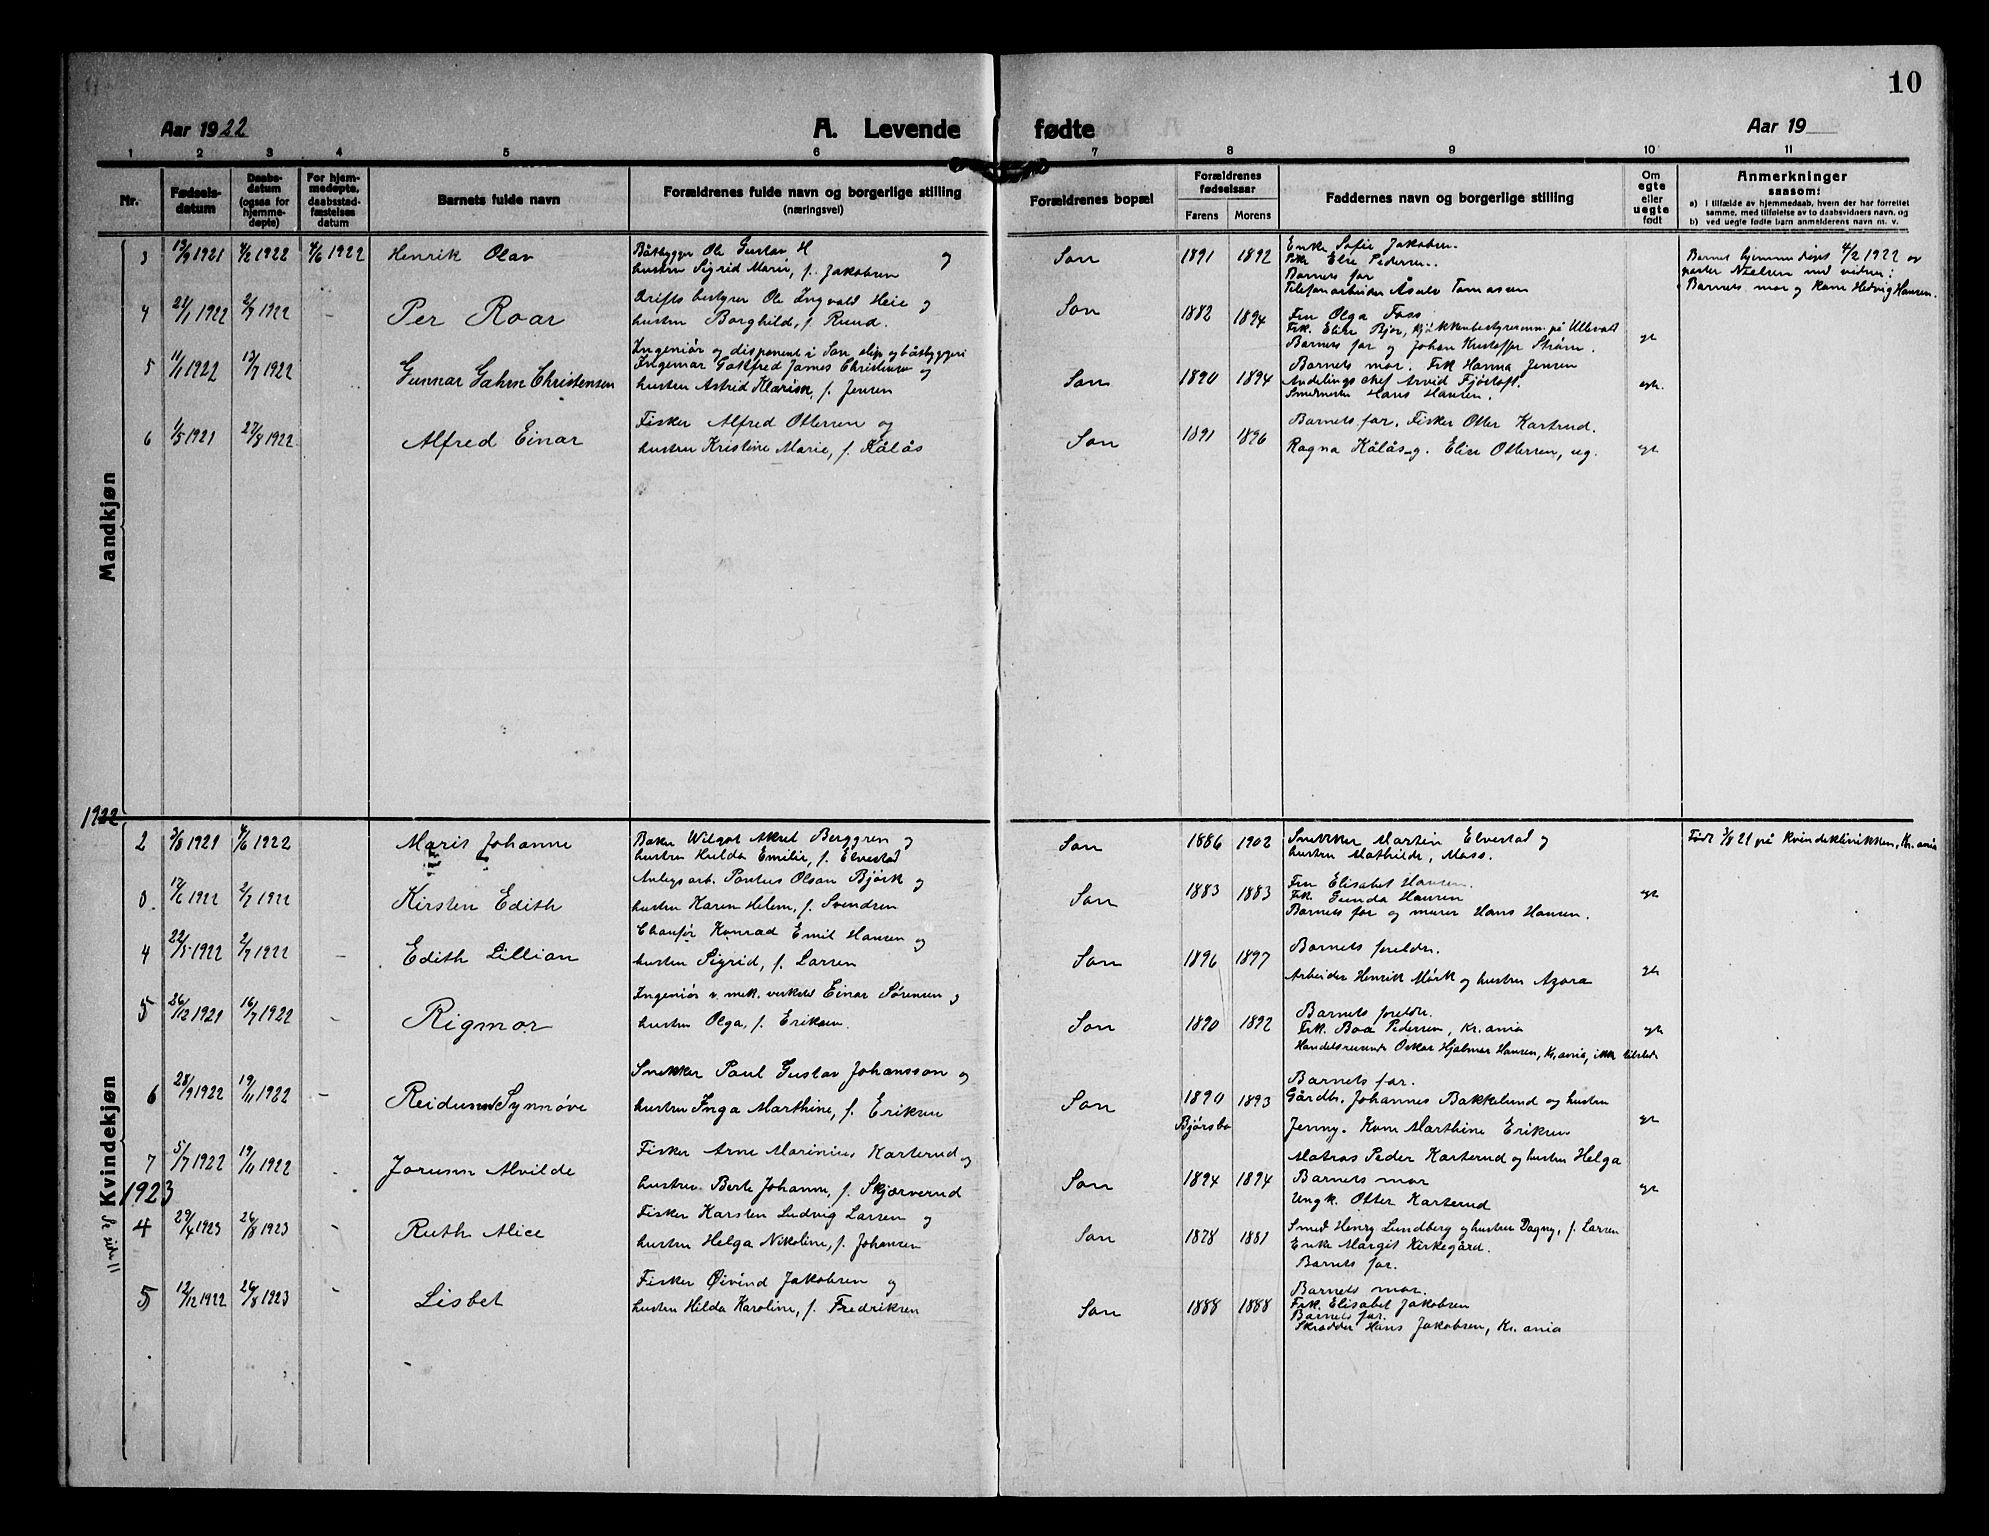 10
Aar 1922
A. Levende fødte
Aar 19
1 2 3 4 5 6 7 8 9 10 11
Nr.
Fødsels-
datum
Daabs-
datum
(ogsaa for
hjemme-
døpte)
For hjem-
medøpte,
daabsstad-
fæstelses
datum
Barnets fulde navn
Forældrenes fulde navn og borgerlige stilling
(næringsvei)
Forældrenes bopæl
Forældrenes
fødselsaar
Farens Morens
Faddernes navn og borgerlige stilling
Om
egte
eller
uegte
født
Anmerkninger
saasom:
a) i tilfælde av hjemmedaab, hvem der har forrettet
samme, med tilføielse av to daabsvidners navn, og
b) ved uegte fødte barn anmelderens navn m. v.
Mandkjøn
3 13/9 1921 4/2 1922 4/6 1922 Henrik Olav
Båtbygger Ole Gustav H og
hustru Sigrid Marie, f. Jakobsen
Son 1891 1892
Enke Sofie Jakobsen.
Frk. Else Pedersen.
Barnets far
Telefonarbeider Åsulv Tomassen
Barnet hjemmedøpt 4/2 1922 av
pastor Nielsen med vidner:
Barnets mor og kone Hedvig Hansen.
4 21/1 1922 2/7 1922 - Per Roar
Driftsbestyrer Ole Ingvald Heie og
hustru Borghild, f. Ruud.
Son 1882 1894
Fru Olga Foss
Frk. Elise Bjor, kjøkkenbestyrerinne på Ullevål
Barnets far og Johan Kristoffer Strøm.
egt
5 11/1 1922 13/7 1922 Gunnar Gahrn Christensen
Ingeniør og disponent i Son slip og båtbyggeri
Ingemar Gotfred James Christensen og
hustru Astrid Klarisse, f. Jensen
Son 1890 1894
Barnets mor. Frk Hanna Jensen
Avdelingschef Arvid Fjørtoft.
Smedmester Hans Hansen.
egt.
6 1/5 1921 27/8 1922 Alfred Einar
Fisker Alfred Ottersen og
hustru Kristine Marie, f. Kålås
Son 1891 1896
Barnets far. Fisker Otter Kartrud.
Ragna Kålås, g. Elise Ottersen, ug.
egt
1922
Kvindekjøn
2 3/8 1921 4/6 1922 Marit Johanne
Baker Wilgot Akred Berggren og
hustru Hulda Emilie, f. Elvestad
Son 1886 1902
Snekker Martin Elvestad og
hustru Mathilde, Moss.
Født 3/8 21 på Kvindeklinikken, Kr.ania
17/6 1922 2/7 1922 Kirsten Edith
Anlegsarb. Pontus Olsan Bjørk og
hustru Karen Helene, f. Svendsen
Son 1883 1883
Fru Elisabet Hansen.
Frk. Gunda Hansen
Barnets far og murer Hans Hansen.
egt
4 22/5 1922 2/7 1922 - Edith Lillian
Chaufør Konrad Emil Hansen og
hustru Sigrid, f. Larsen
Son 1896 1897
Barnets foreldre.
Arbeider Henrik Mørk og hustru Azora
egt
5 26/12 1921 16/7 1922 - Rigmor
Ingeniør v. mek. verksted Einar Sørensen og
hustru Olga, f. Eriksen.
Son 1890 1892
Barnets foreldre.
Frk. Boa Pedersen, Kr.ania
Handelsreisende Oskar Hjalmar Hansen, Kr.ania, ikke tilstede
egt
6 28/9 1922 19/11 1922 - Reidunn Synnøve
Snekker Paul Gustav Johansson og
hustru Inga Marthine, f. Eriksen
Son 1890 1893
Bjørsbo
Barnets far.
Gårdbr. Johannes Bakkelund og hustru
Jenny. Kone Marthine Eriksen
egt
7 5/7 1922 19/11 1922 - Jorunn Alvilde
Fisker Arne Marinius Karterud og
hustru Berte Johanne, f. Skjærverud
Son 1894 1894
Matros Peder Karterud og hustru Helga
Barnets mor
Ungk. Otter Karterud
egt
1923
4 29/4 1923 26/8 1923 - Ruth Alice
Fisker Karsten Ludvig Larsen og
hustru Helga Nikoline, f. Johansen
Son 1878 1881
Smed Henry Lundberg og hustru Dagny, f. Larsen
Enke Margit Kirkegård.
Barnets far.
5 12/12 1922 26/8 1923 - Lisbet
Fisker Øivind Jakobsen og
hustru Hilda Karoline, f. Fredriksen
Son 1888 1888
Barnets mor.
Frk. Elisabet Jakobsen
Barnets far.
Skrædder Hans Jakobsen, Kr.ania